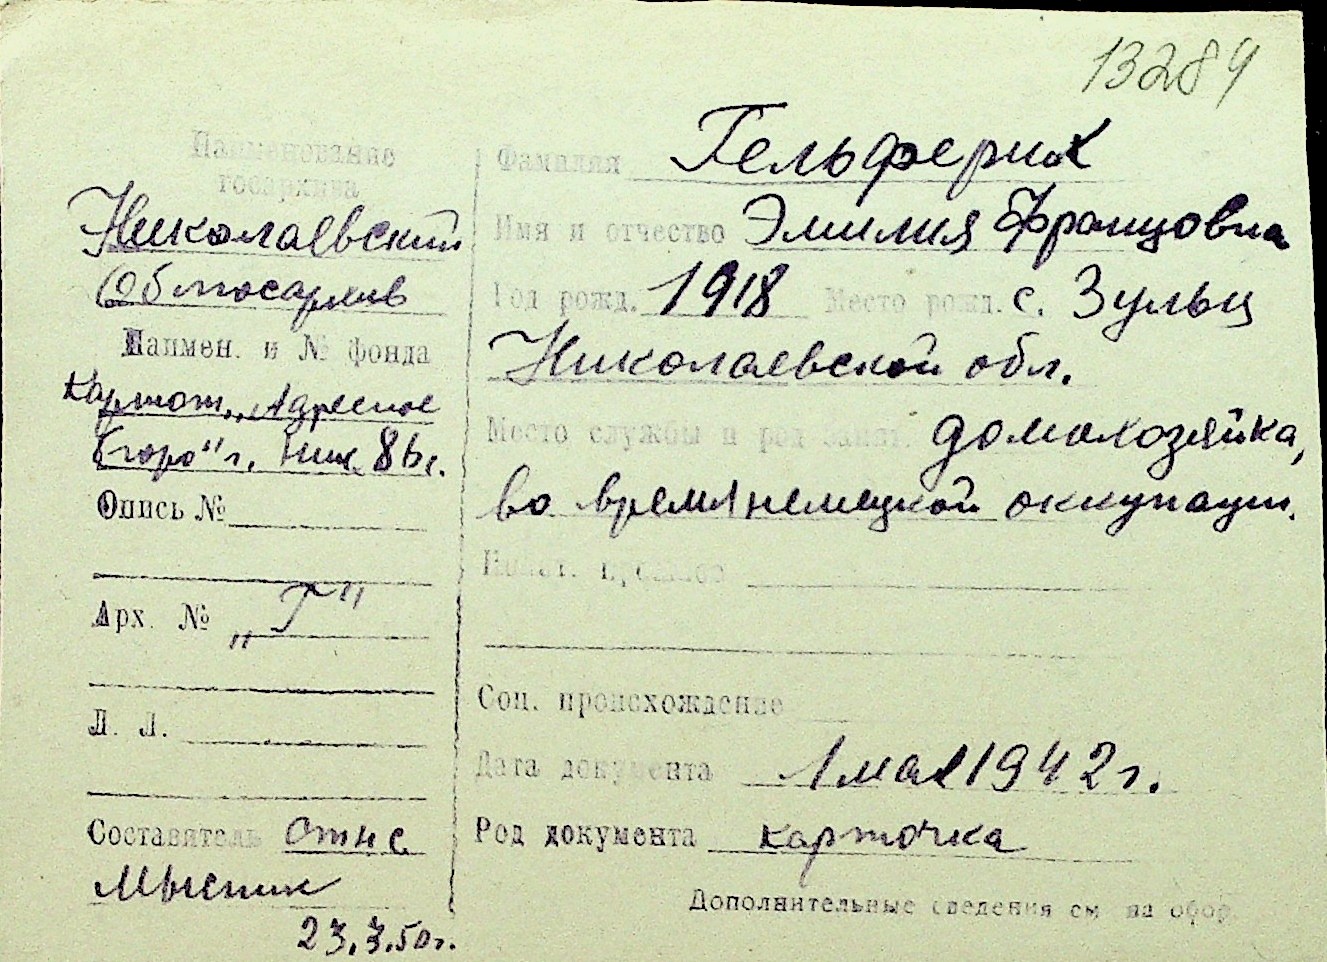 13289
Наименование
госархива
Николаевский
Облгосархив
Наимен. и № фонда
Картот. „Адресное
бюро" г. Ник.
Опись №
Арх. № „Г"
Л. Л.
Составитель
23.3.50г.
Фамилия Гельферих
Имя и отчество Эмилия Францовна
Год рожд. 1918 Место рожд. с. Зульц
Николаевской обл.
Место службы и род занят. домохозяйка,
во время немецкой оккупации.
Соц. происхождение
Дата документа 1 мая 1942 г.
Род документа карточка
Дополнительные сведения см на обор.